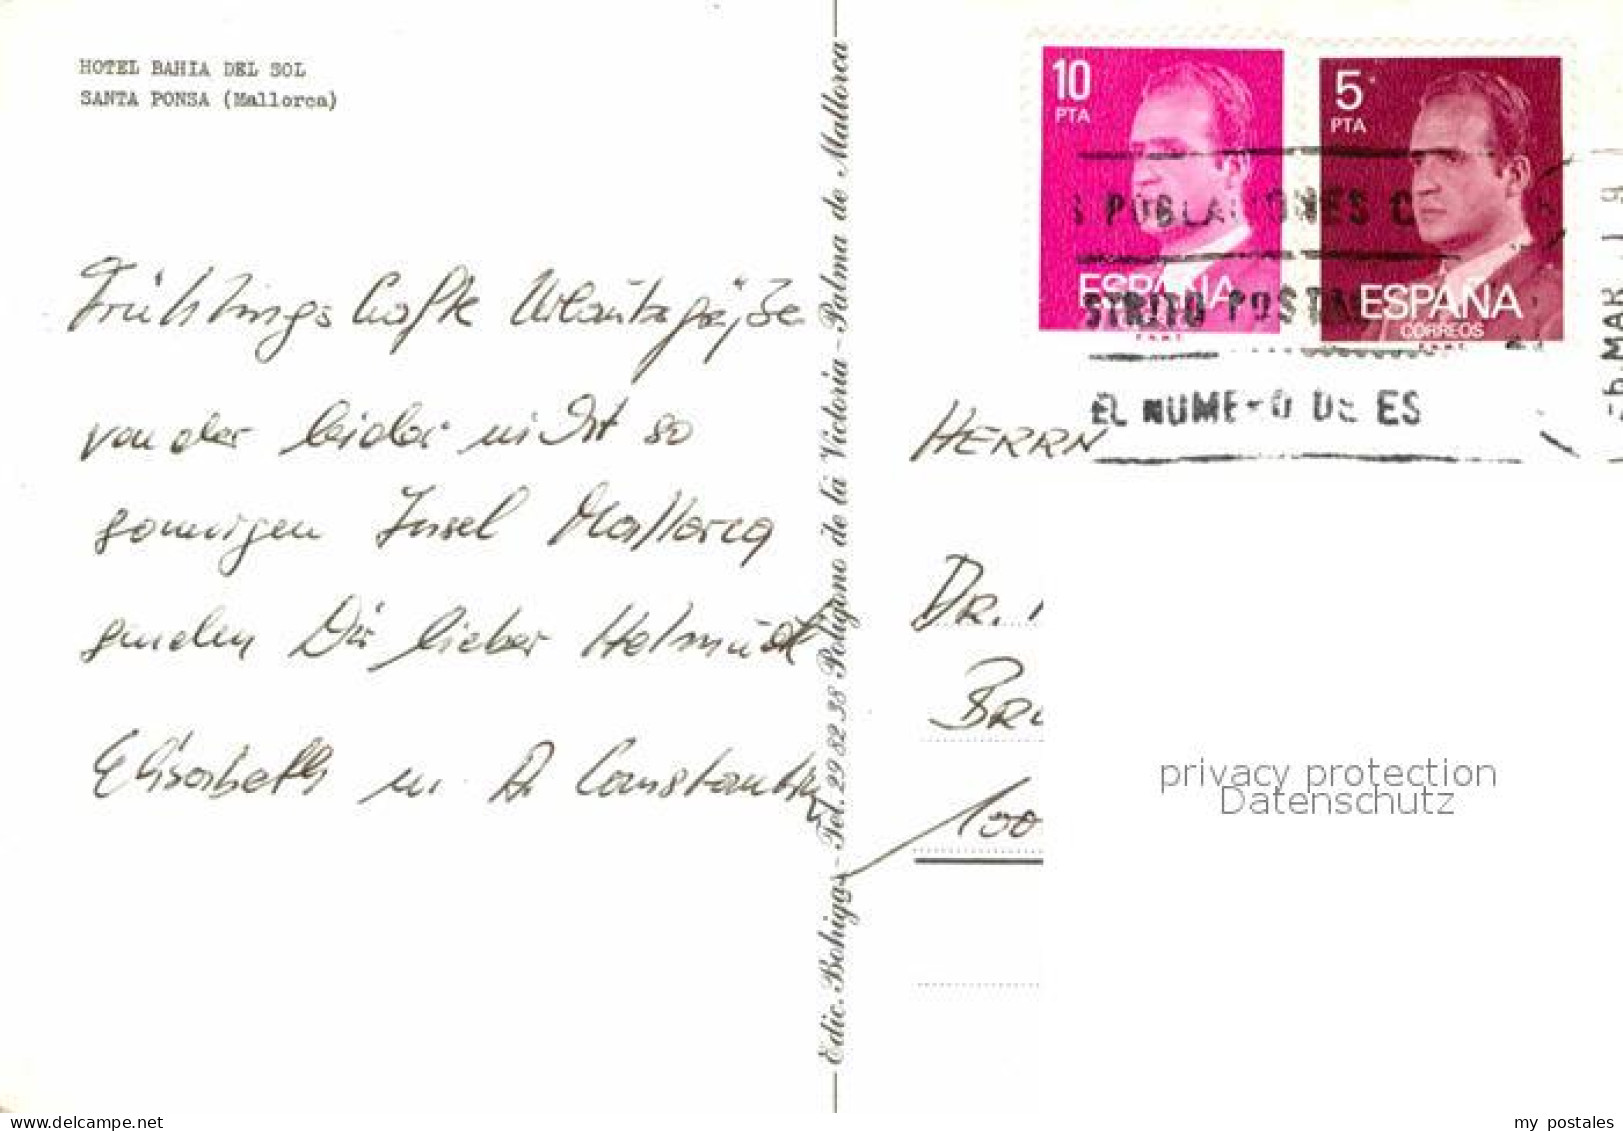 HOTEL BAHIA DEL SOL
SANTA PONSA (Mallorca)
Frühlingshafte Urlaubsgrüße
von der leider nicht so
sonnigen Insel Mallorca
senden Dir lieber Helmut
Elisabeth u. Constantin
Edic. Bohigas - Tel. 29 82 38 Polígono de la Victoria - Palma de Mallorca
10
PTA
ESPAÑA
5
PTA
ESPAÑA
CORREOS
F.N.M.T.
POBLACIONES C
STRITO POSTAL
EL NUMERO DE ES
MAR
HERRN
DR.
BRU
100
privacy protection
Datenschutz
my postales